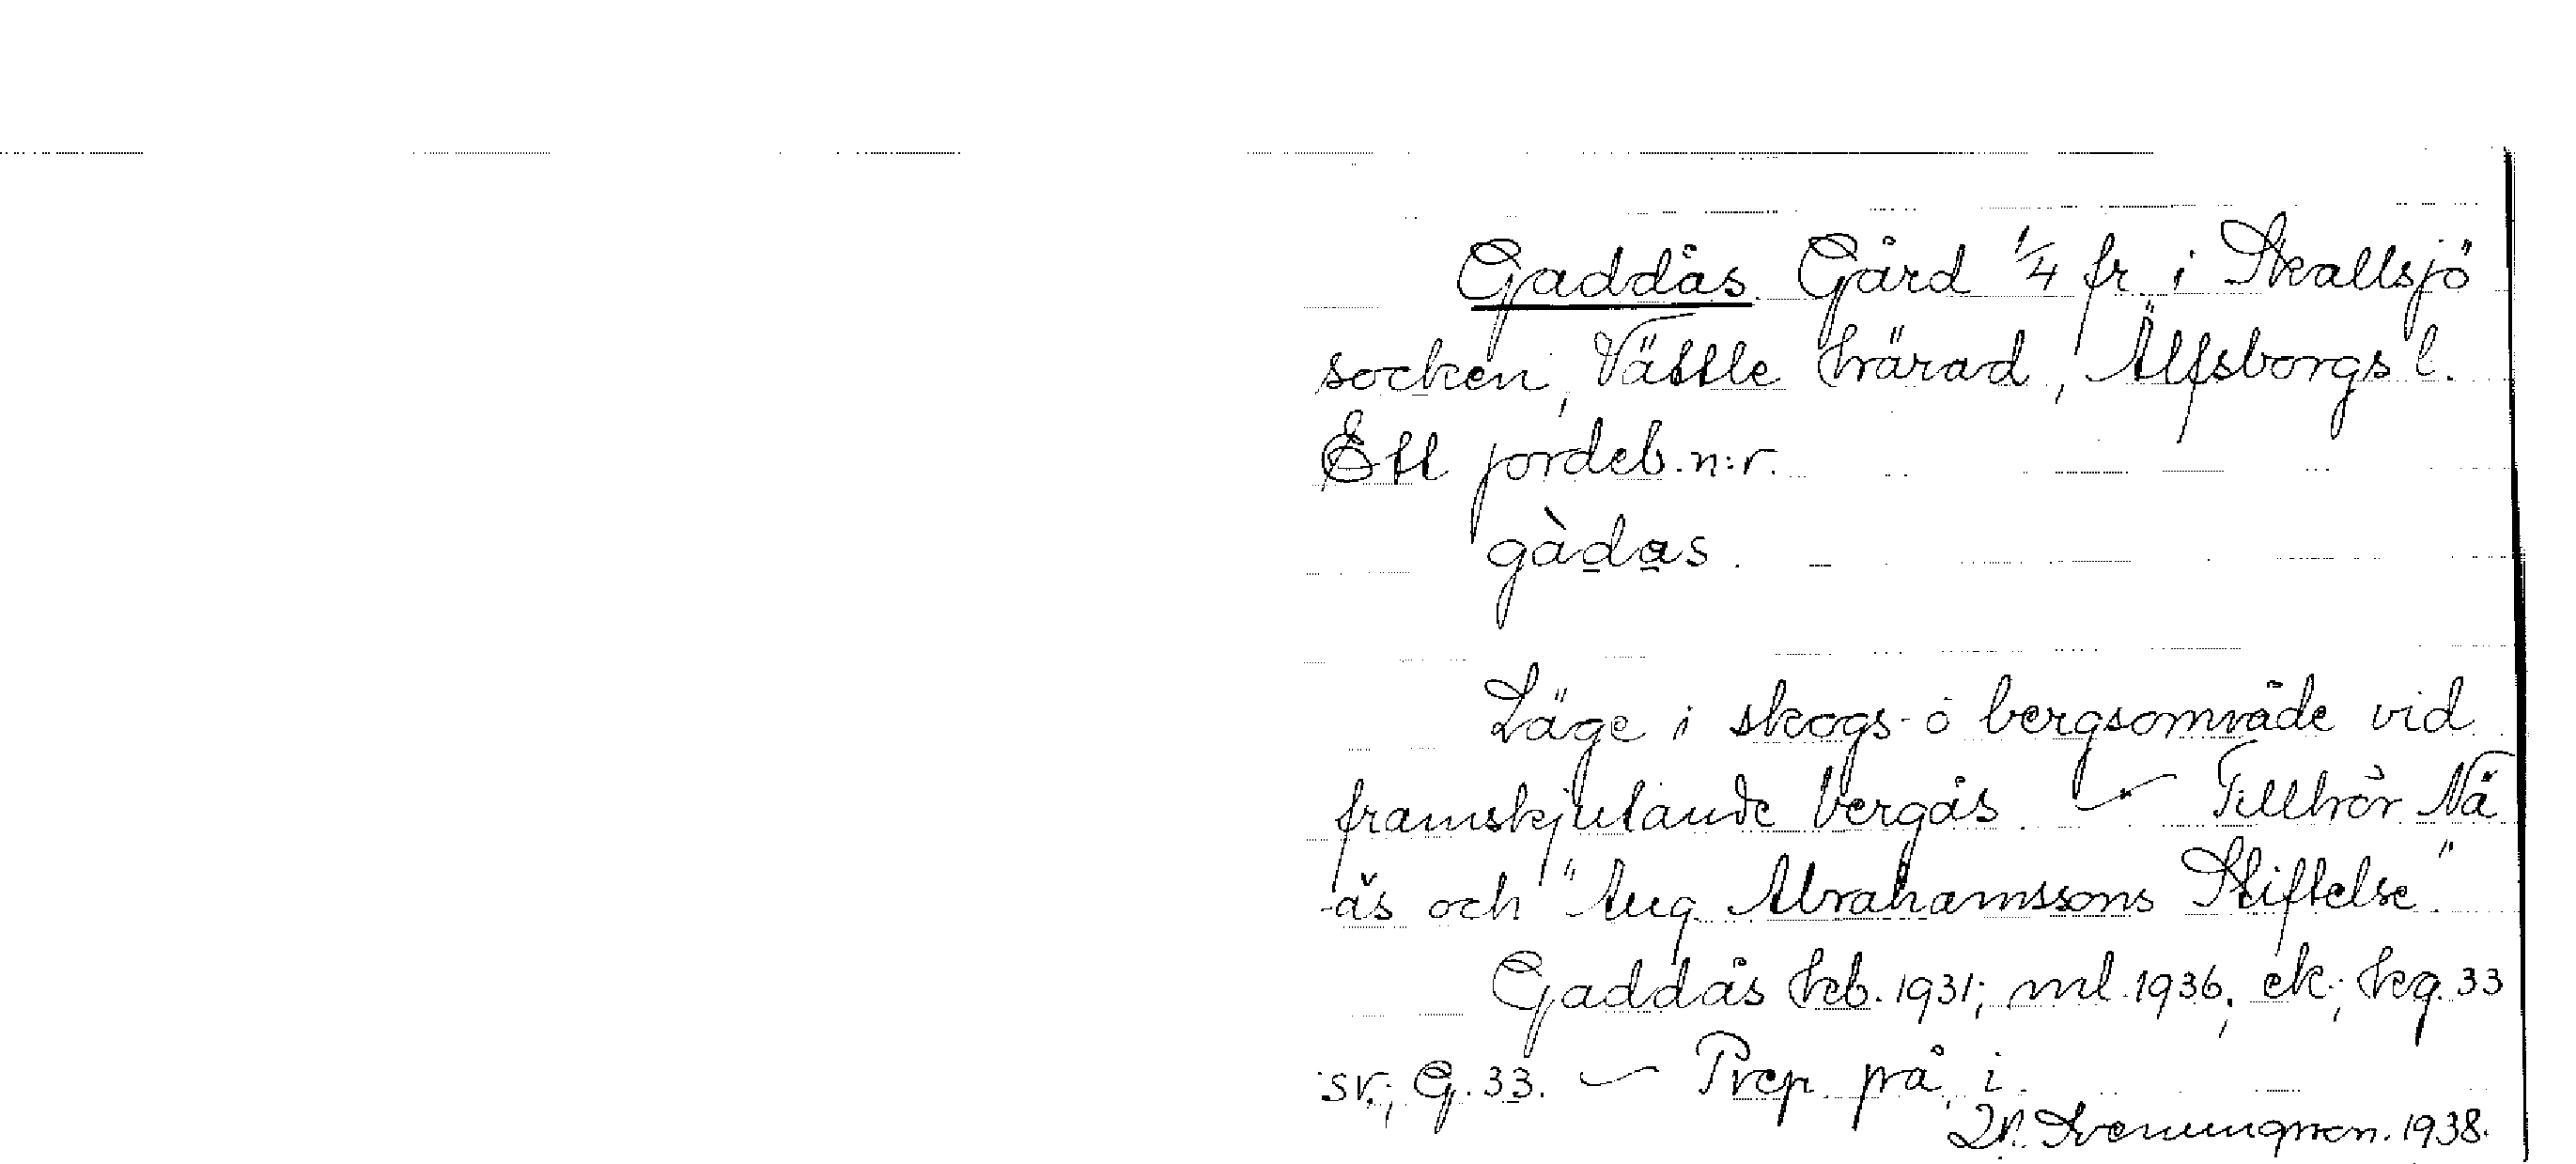 Gaddås. Gård 1/4 fr. i Skallsjö
socken, Vättle härad, Älfsborgs l.
Ett jordeb.n:r.
gàdas.
Läge i skogs- o bergsområde vid
framskjutande bergås. – Tillhör Nä
-äs och "Aug Abrahamssons Stiftelse".
Gaddås hcb. 1931; ml. 1936; ek.; kg. 33
sv.; G. 33. – Prep. på, i.
1938.